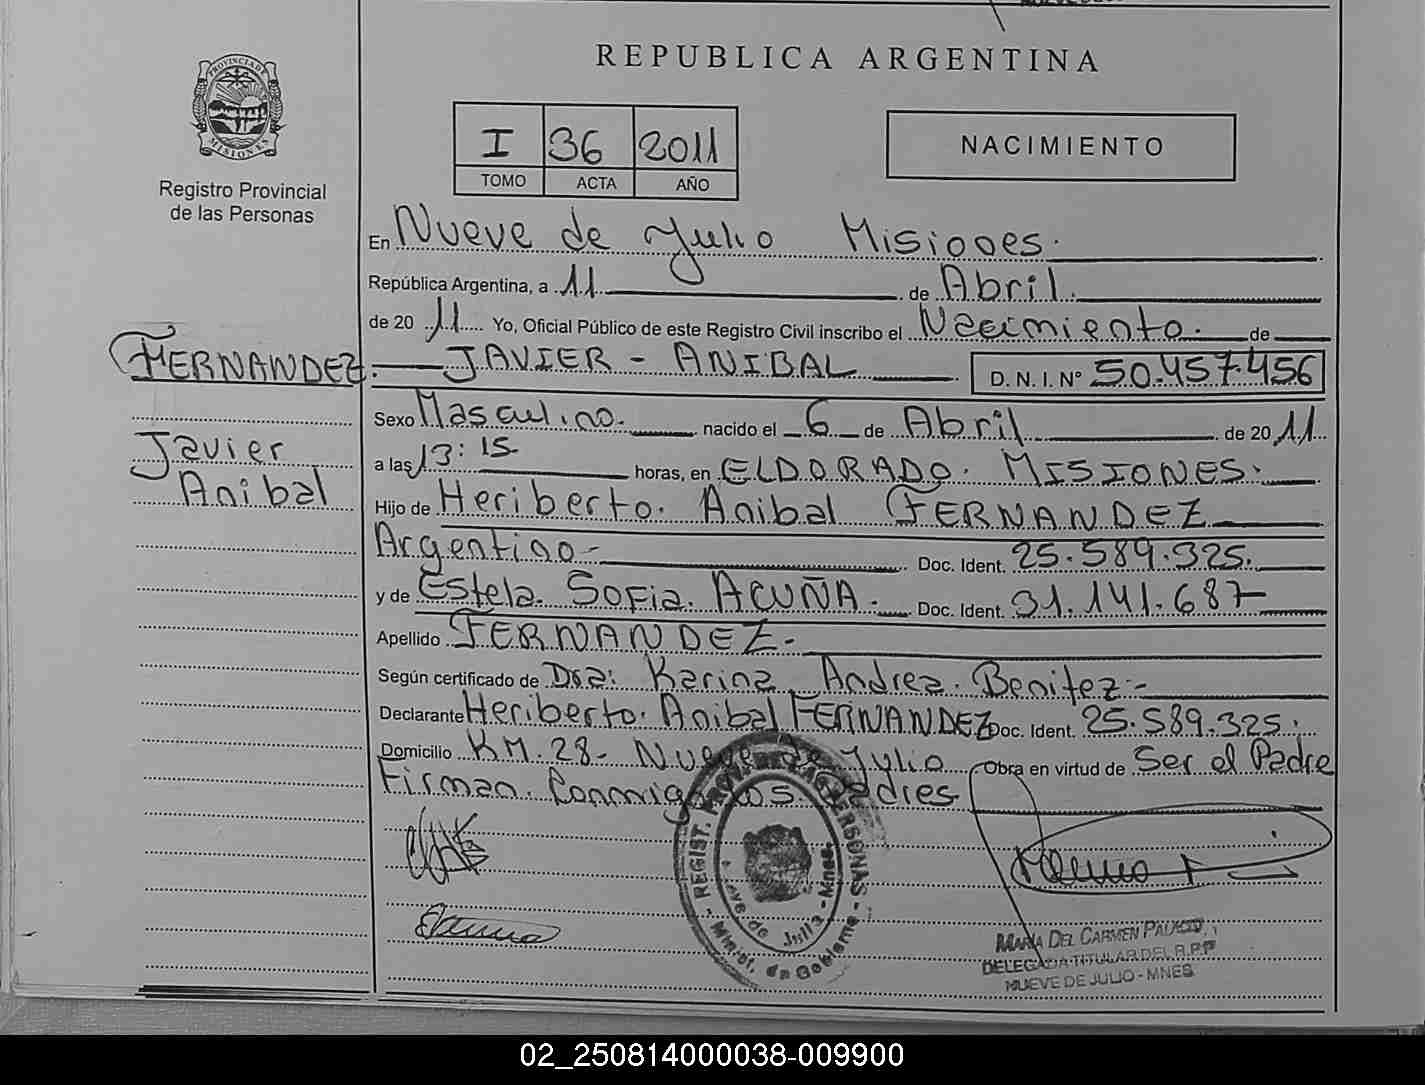 REPUBLICA ARGENTINA
PROVINCIA DE
MISIONES
Registro Provincial
de las Personas
I 36 2011
TOMO ACTA AÑO
NACIMIENTO
En Nueve de Julio Misiones.
República Argentina, a 11 de Abril.
de 20 11 Yo, Oficial Público de este Registro Civil inscribo el Nacimiento. de
FERNANDEZ. JAVIER - ANIBAL D.N.I. Nº 50.457.456
Javier
Anibal
Sexo Masculino. nacido el 6 de Abril de 20 11
a las 13:15 horas, en ELDORADO. MISIONES.
Hijo de Heriberto. Anibal FERNANDEZ
Argentino- Doc. Ident. 25.589.325.
y de Estela. Sofia. ACUÑA. Doc. Ident. 31.141.687
Apellido FERNANDEZ-
Según certificado de Dra: Karina Andrea. Benitez-
Declarante Heriberto. Anibal FERNANDEZ Doc. Ident. 25.589.325.
Domicilio KM.28- Nueve de Julio Obra en virtud de Ser el Padre
Firman. Conmigo los Padres
REGIST. PROV. DE LAS PERSONAS - Minist. de Gobierno -
Nve. de Julio - Mnes.
MARIA DEL CARMEN
DELEGADA TITULAR DEL R.P.P
NUEVE DE JULIO - MNES
02_250814000038-009900